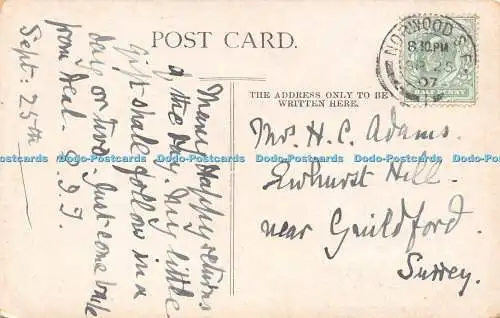 POST CARD.
THE ADDRESS ONLY TO BE
WRITTEN HERE.
NORWOOD S.E.
8.30 PM
SP 25
07
HALF PENNY
Many Happy returns
of the day. My little
gift shall follow in a
day or two. Just come back
from Deal.
Sept: 25th
Mrs H. C. Adams.
Ewhurst Hill.
near Guildford.
Surrey.
Dodo-Postcards Dodo-Postcards Dodo-Postcards Dodo-Postcards Dodo-Postcards Dodo-Postcards